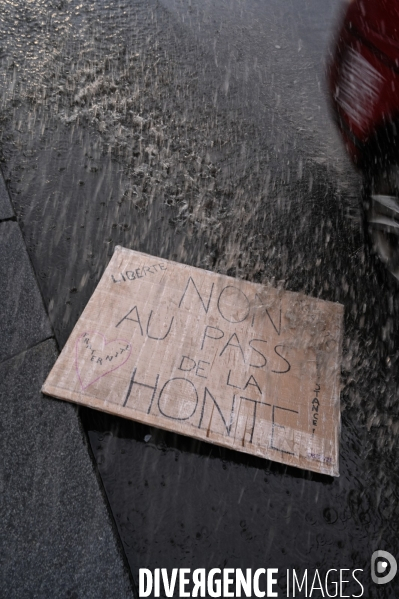 LIBERTÉ
NON
AU PASS
DE LA
HONTE
DIVERGENCE IMAGES